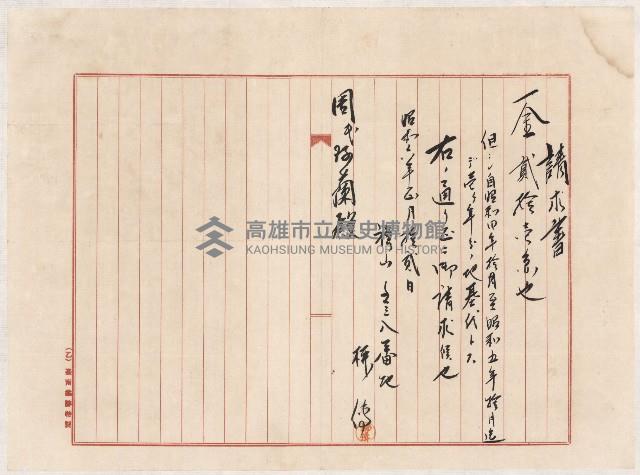 請求書
一金貳拾壱円也
但シ自昭和四年拾月至昭和五年拾月迄
壱ケ年分ノ地基代トス
右ノ通リ正ニ御請求候也
昭和六年正月拾貳日
山 壱三八番地
周 蘭殿
高雄市立歷史博物館
KAOHSIUNG MUSEUM OF HISTORY